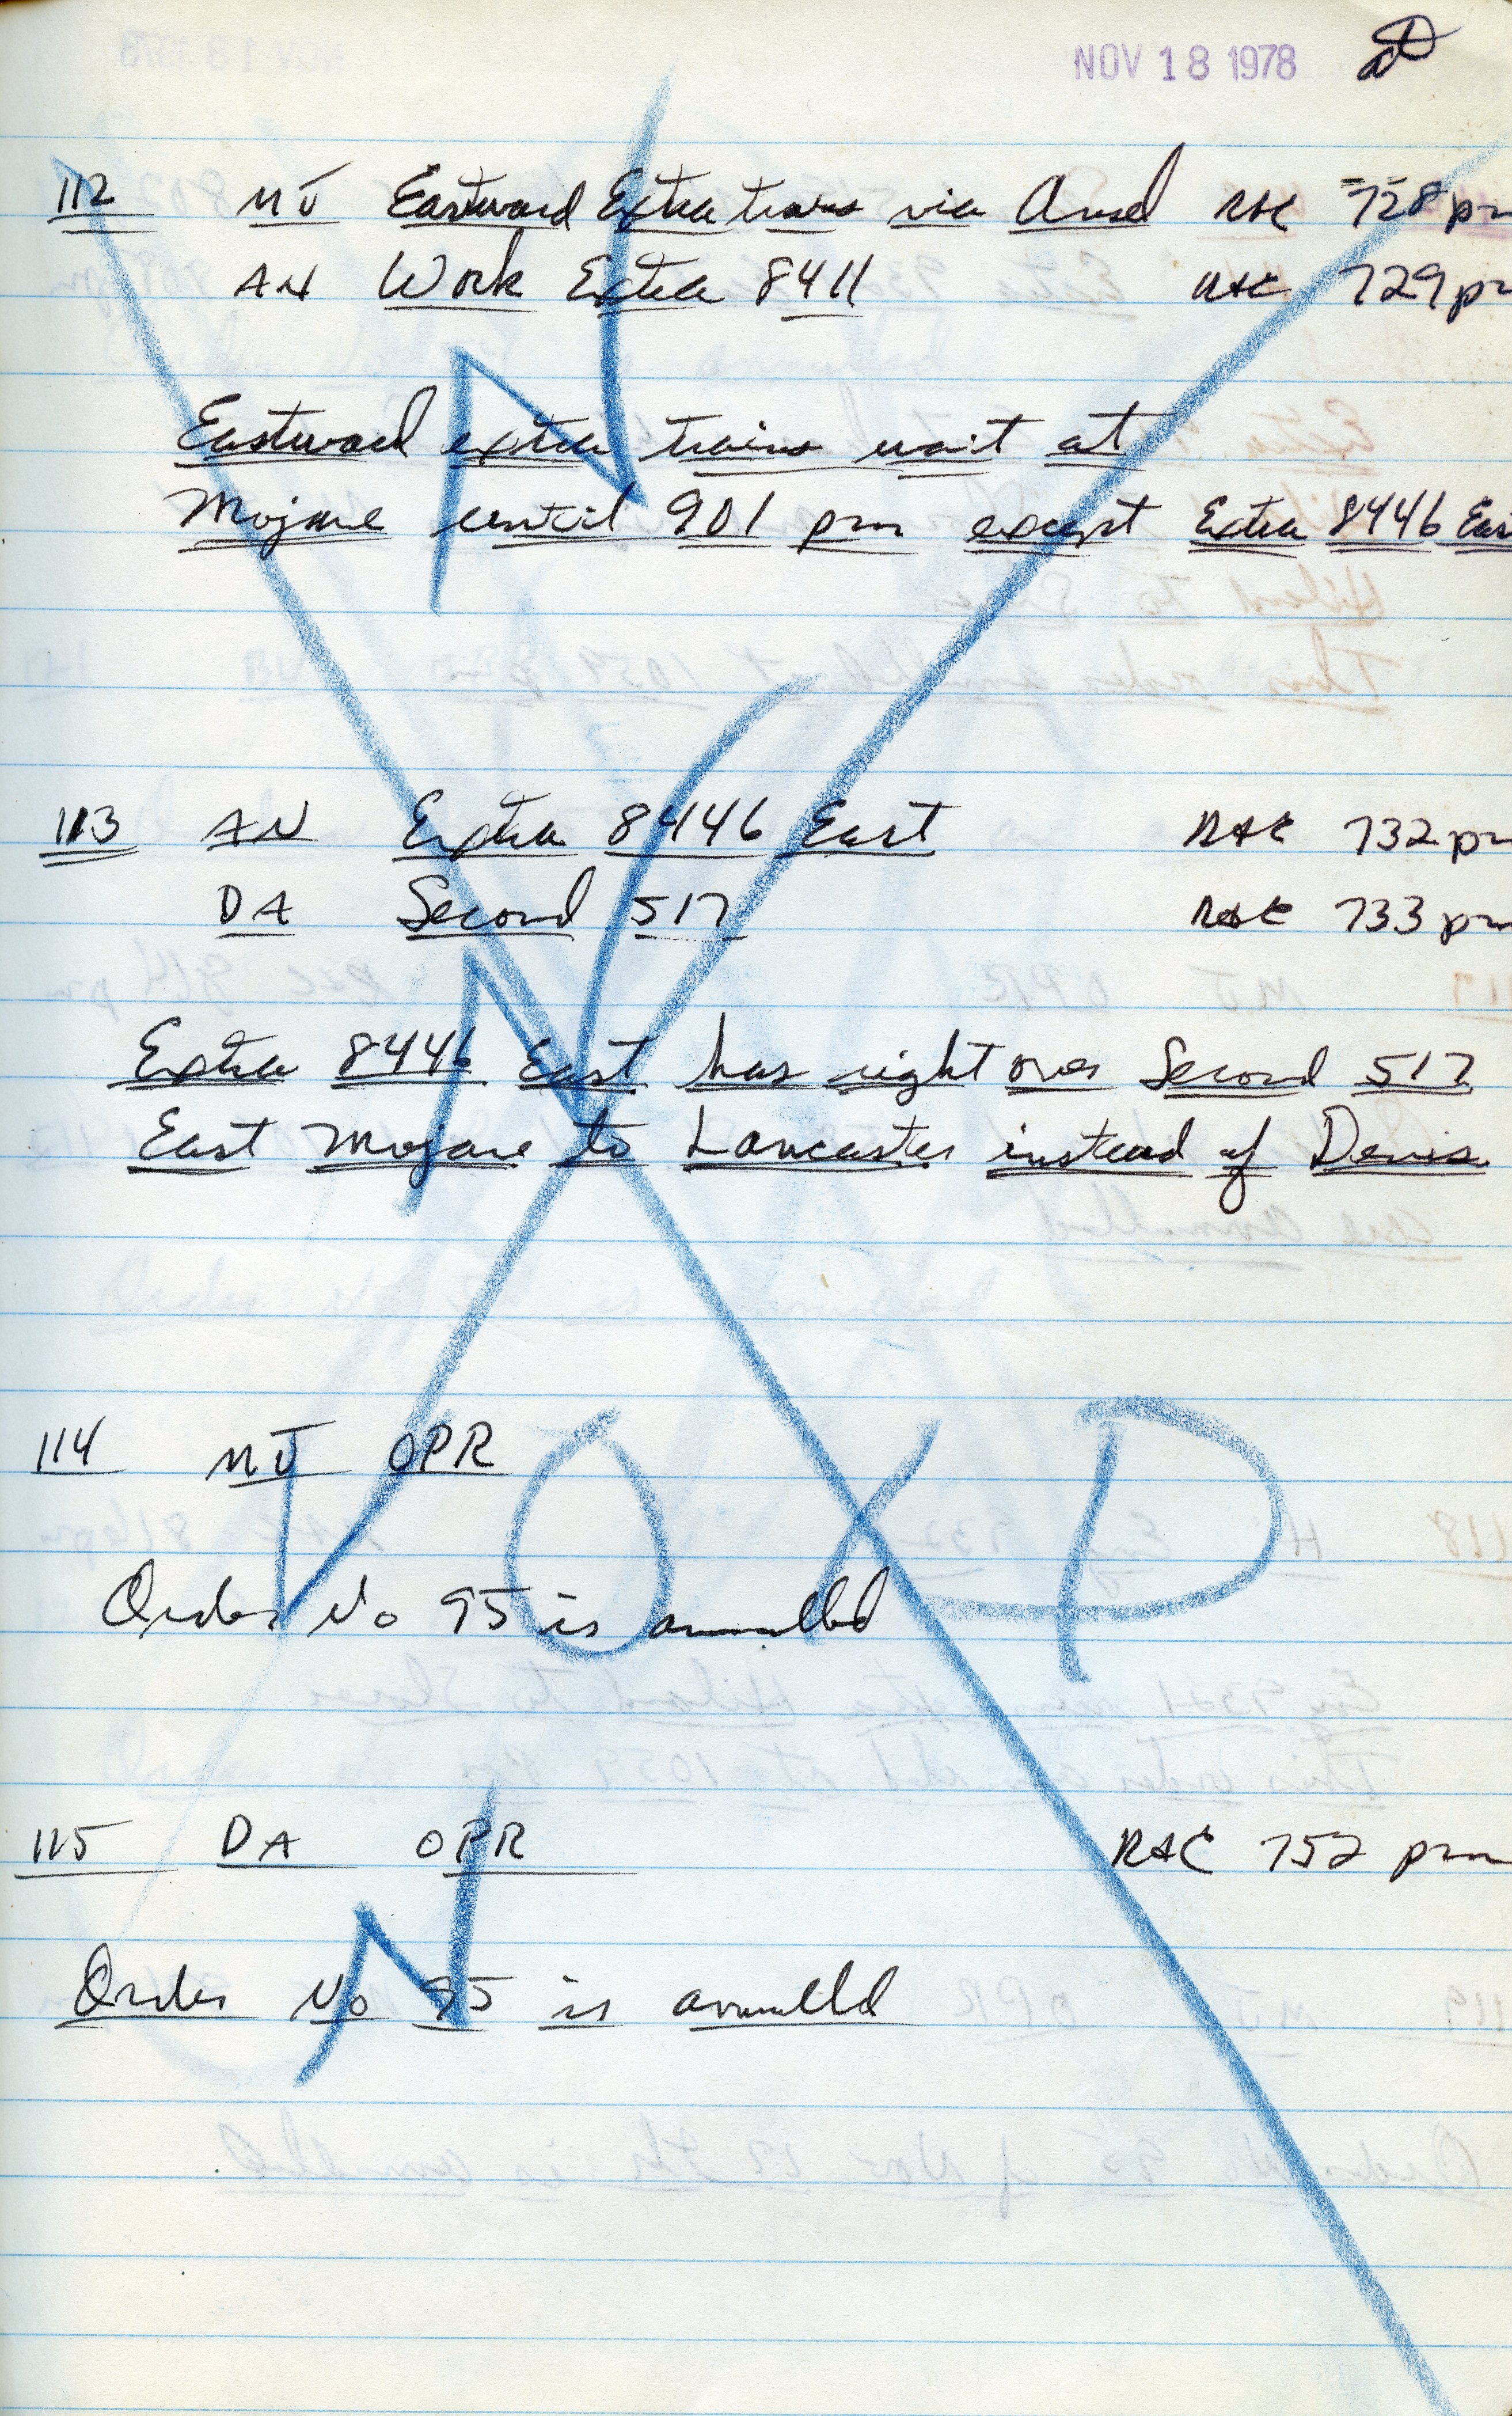 NOV 18 1978
112 MJ Eastward Extra trains via Ansel RAC 728 pm
AN Work Extra 8411 RAC 729 pm
Eastward extra trains wait at
Mojave until 901 pm except Extra 8446 East
113 AN Extra 8446 East RAC 732 pm
DA Second 517 RAC 733 pm
Extra 8446 East has right over Second 517
East Mojave to Lancaster instead of Denis
114 MJ OPR
V O X D
Order No 95 is annulled
115 DA OPR RAC 752 pm
Order No 95 is annulled
N
N
N